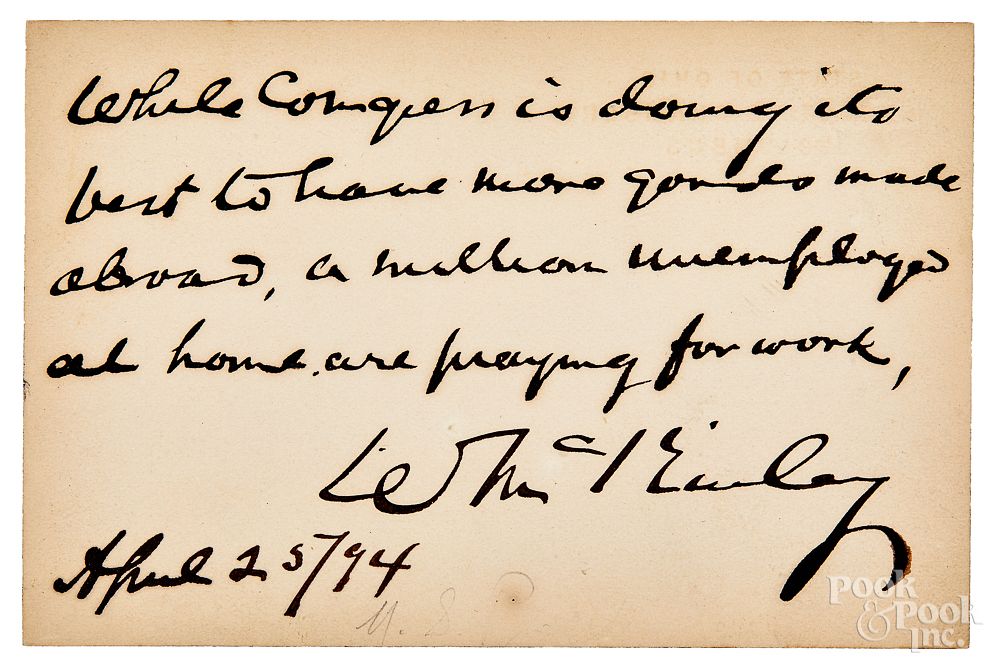 While Congress is doing its
best to have more goods made
abroad, a million unemployed
at home are praying for work,
W McKinley
April 25/94
POOK
& POOK
INC.